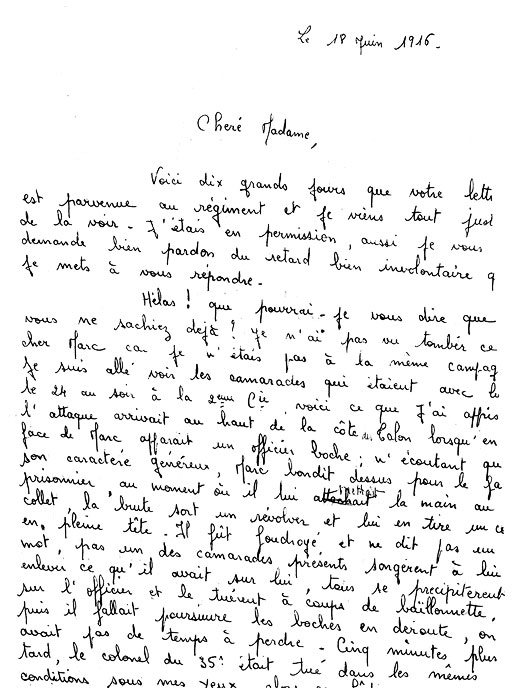 Le 18 Juin 1916.
Cheré Madame,
Voici dix grands jours que votre lett
est parvenue au régiment et je viens tout just
de la voir - J'étais en permission, aussi je vous
demande bien pardon du retard bien involontaire q
je mets à vous répondre -
Hélas ! que pourrai-je vous dire que
vous ne sachiez dejà ? Je n'ai pas vu tomber ce
cher Marc car je n'étais pas à la même campag
Je suis allé voir les camarades qui étaient avec lu
le 24 au soir à la 2ème Cie voici ce que J'ai appris
l'attaque arrivait au haut de la côte du Talon lorsqu'en
face de Marc apparait un officier boche ; n'écoutant qu
son caractère généreux, Marc bondit dessus pour le fa
prisonnier au moment où il lui mettait la main au
collet, la brute sort un révolver et lui en tire un c
en pleine tête - Il fût foudroyé et ne dit pas un
mot, pas un des camarades présents songèrent à lui
enlever ce qu'il avait sur lui, tous se precipitèrent
sur l'officier et le tuèrent à coups de baïllonnette,
puis il fallait poursuivre les boches en deroute, on
avait pas de temps à perdre - Cinq minutes plus
tard, le colonel du 35e était tué dans les mêmes
conditions sous mes yeux